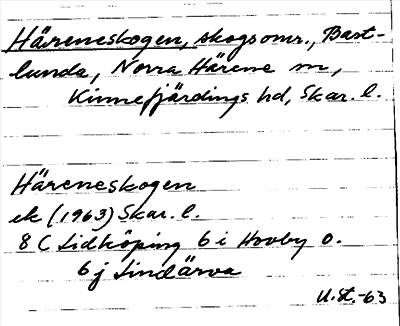 Häreneskogen, skogsomr., Bast-
lunda, Norra Härene sn,
Kinnefjärdings hd, Skar. l.
Häreneskogen
ek (1963) Skar. l.
8 C Lidköping 6 i Hovby o.
6 j Lindärva
U.St.-63